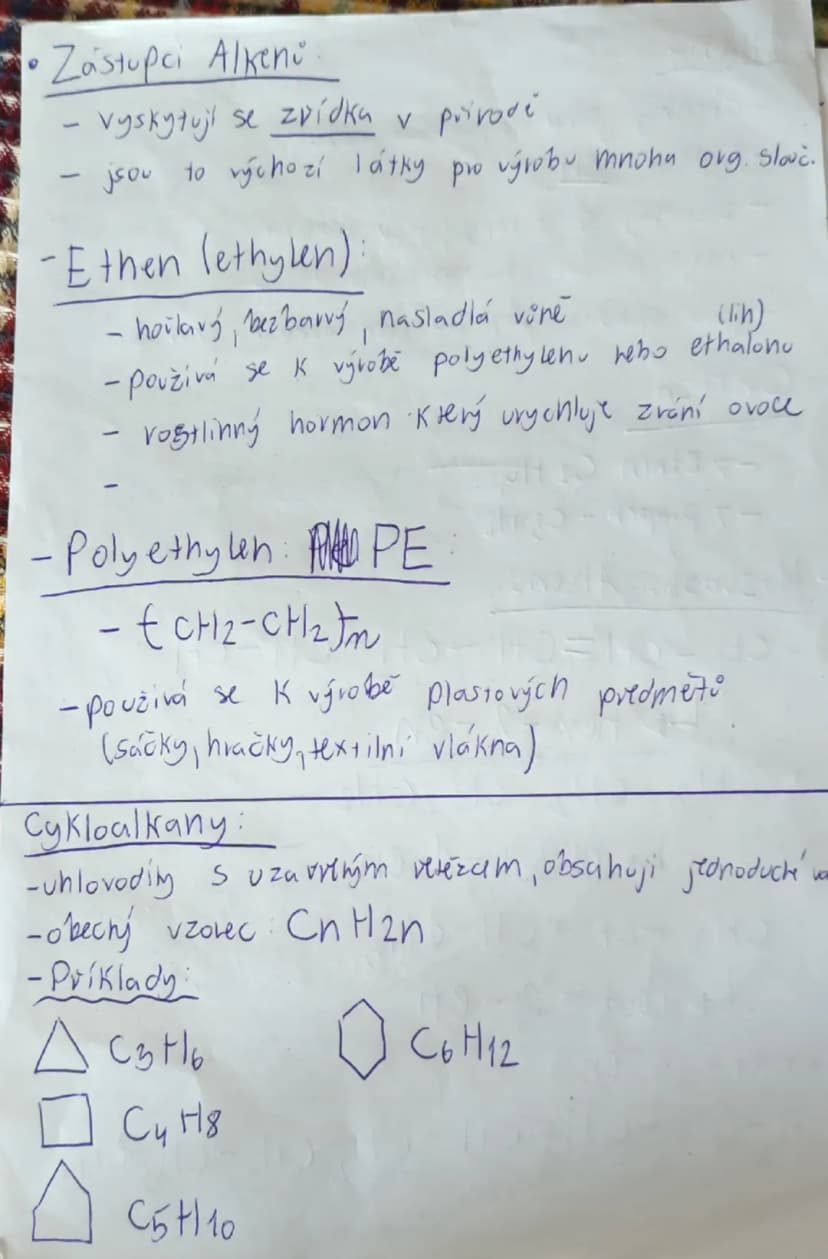 • Zástupci Alkenů:
- vyskytují se zřídka v přírodě
- jsou to výchozí látky pro výrobu mnoha org.slouč.
- Ethen (ethylen):
- hořlavý, bezbarvý, nasladlá vůně
(líh)
- používá se k výrobě polyethylenu nebo ethalonu
- rostlinný hormon který urychluje zrání ovoce
-
- Polyethylen: PE
- {CH2-CH2}n
- používá se k výrobě plastových předmětů
(sáčky, hračky, textilní vlákna)
Cykloalkany:
- uhlovodíky s uzavřeným řetězcem, obsahují jednoduché
- obecný vzorec: CnH2n
- Příklady:
C3H6 C6H12
C4H8
C5H10